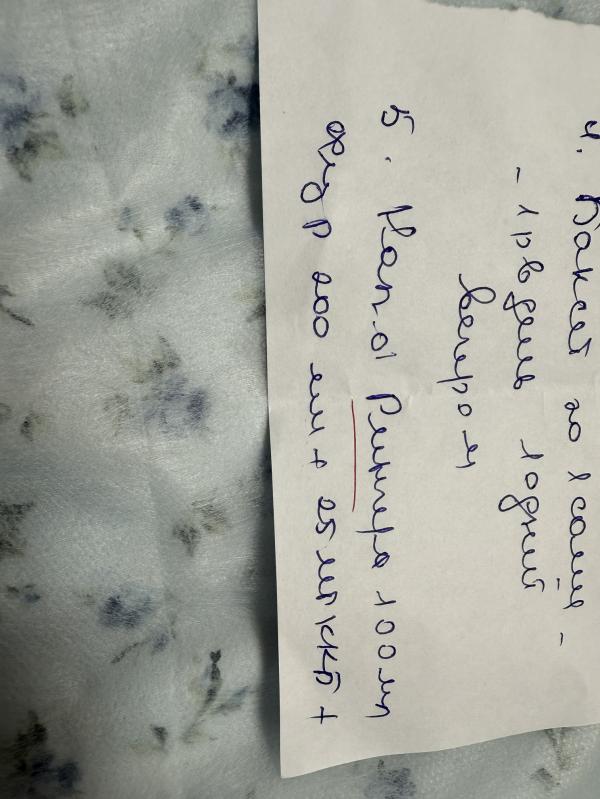 4. Баксет по 1 саше -
- 1 р в день 10 дней
вечером
5. Кап-ца Рингера 100 мл
физ р 200 мл + 25 мг ККБ +